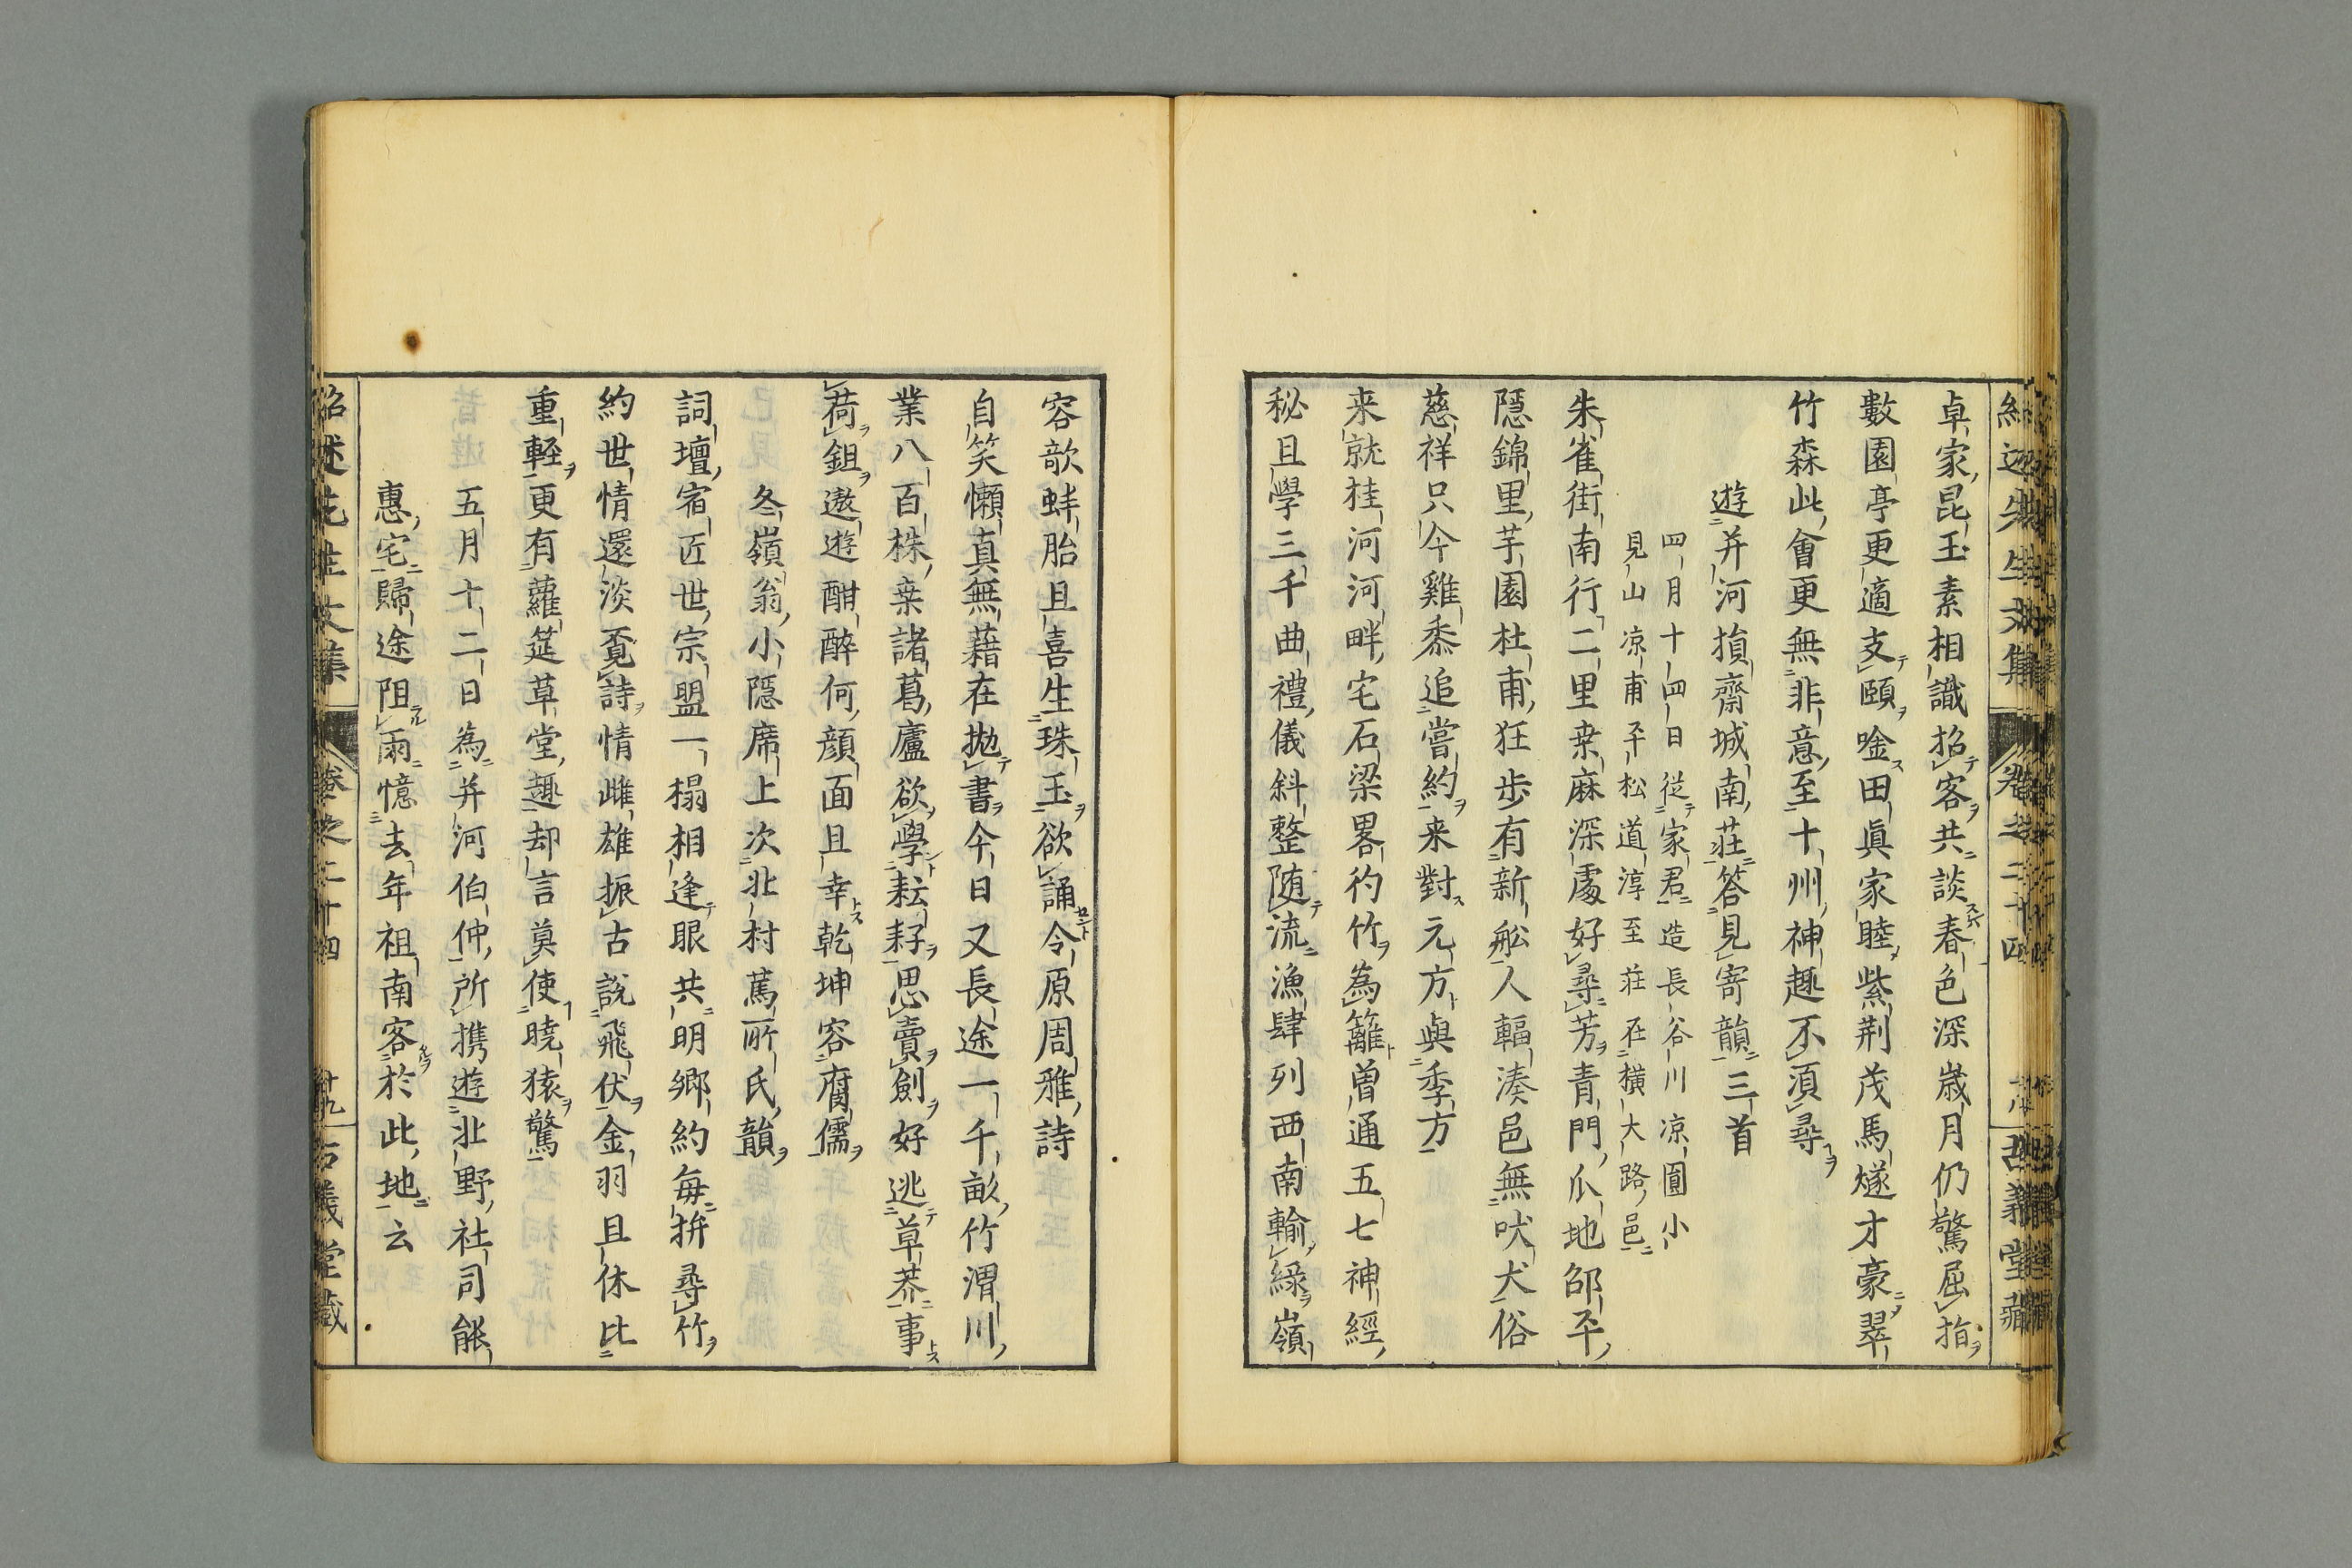 卓家昆玉素相識招客共談春色深歳月仍驚屈指
數園亭更適支頤唫田眞家睦紫荆茂馬燧才豪翠
竹森此會更無非意至十州神趣不須尋
遊并河損齋城南莊答見寄韻三首
四月十四日從家君造長谷川凉圓小
見山凉甫平松道淳至莊在横大路邑
朱雀街南行二里桒麻深處好尋芳青門瓜地邵平
隱錦里芋園杜甫狂步有新舩人輻湊邑無吠犬俗
慈祥只今雞黍追嘗約来對元方與季方
来就桂河河畔宅石梁畧彴竹為籬曽通五七神經
秘且學三千曲禮儀斜整随流漁肆列西南輸緑嶺
容歆蚌胎且喜生珠玉欲誦令原周雅詩
自笑懶真無藉在拋書今日又長途一千畝竹渭川
業八百株桒諸葛廬欲學耘耔思賣劍好逃草莽事
荷鉏遨遊酣醉何顔面且幸乾坤容腐儒
冬嶺翁小隱席上次北村篤所氏韻
詞壇宿匠世宗盟一榻相逢眼共明鄉約每拚尋竹
約世情還淡覔詩情雌雄振古説飛伏金羽且休比
重輕更有蘿筵草堂趣却言莫使曉猿驚
五月十二日為并河伯仲所携遊北野社司能
惠宅歸途阻雨憶去年祖南客於此地云
紹述先生文集
卷之二十四
十九
古義堂藏